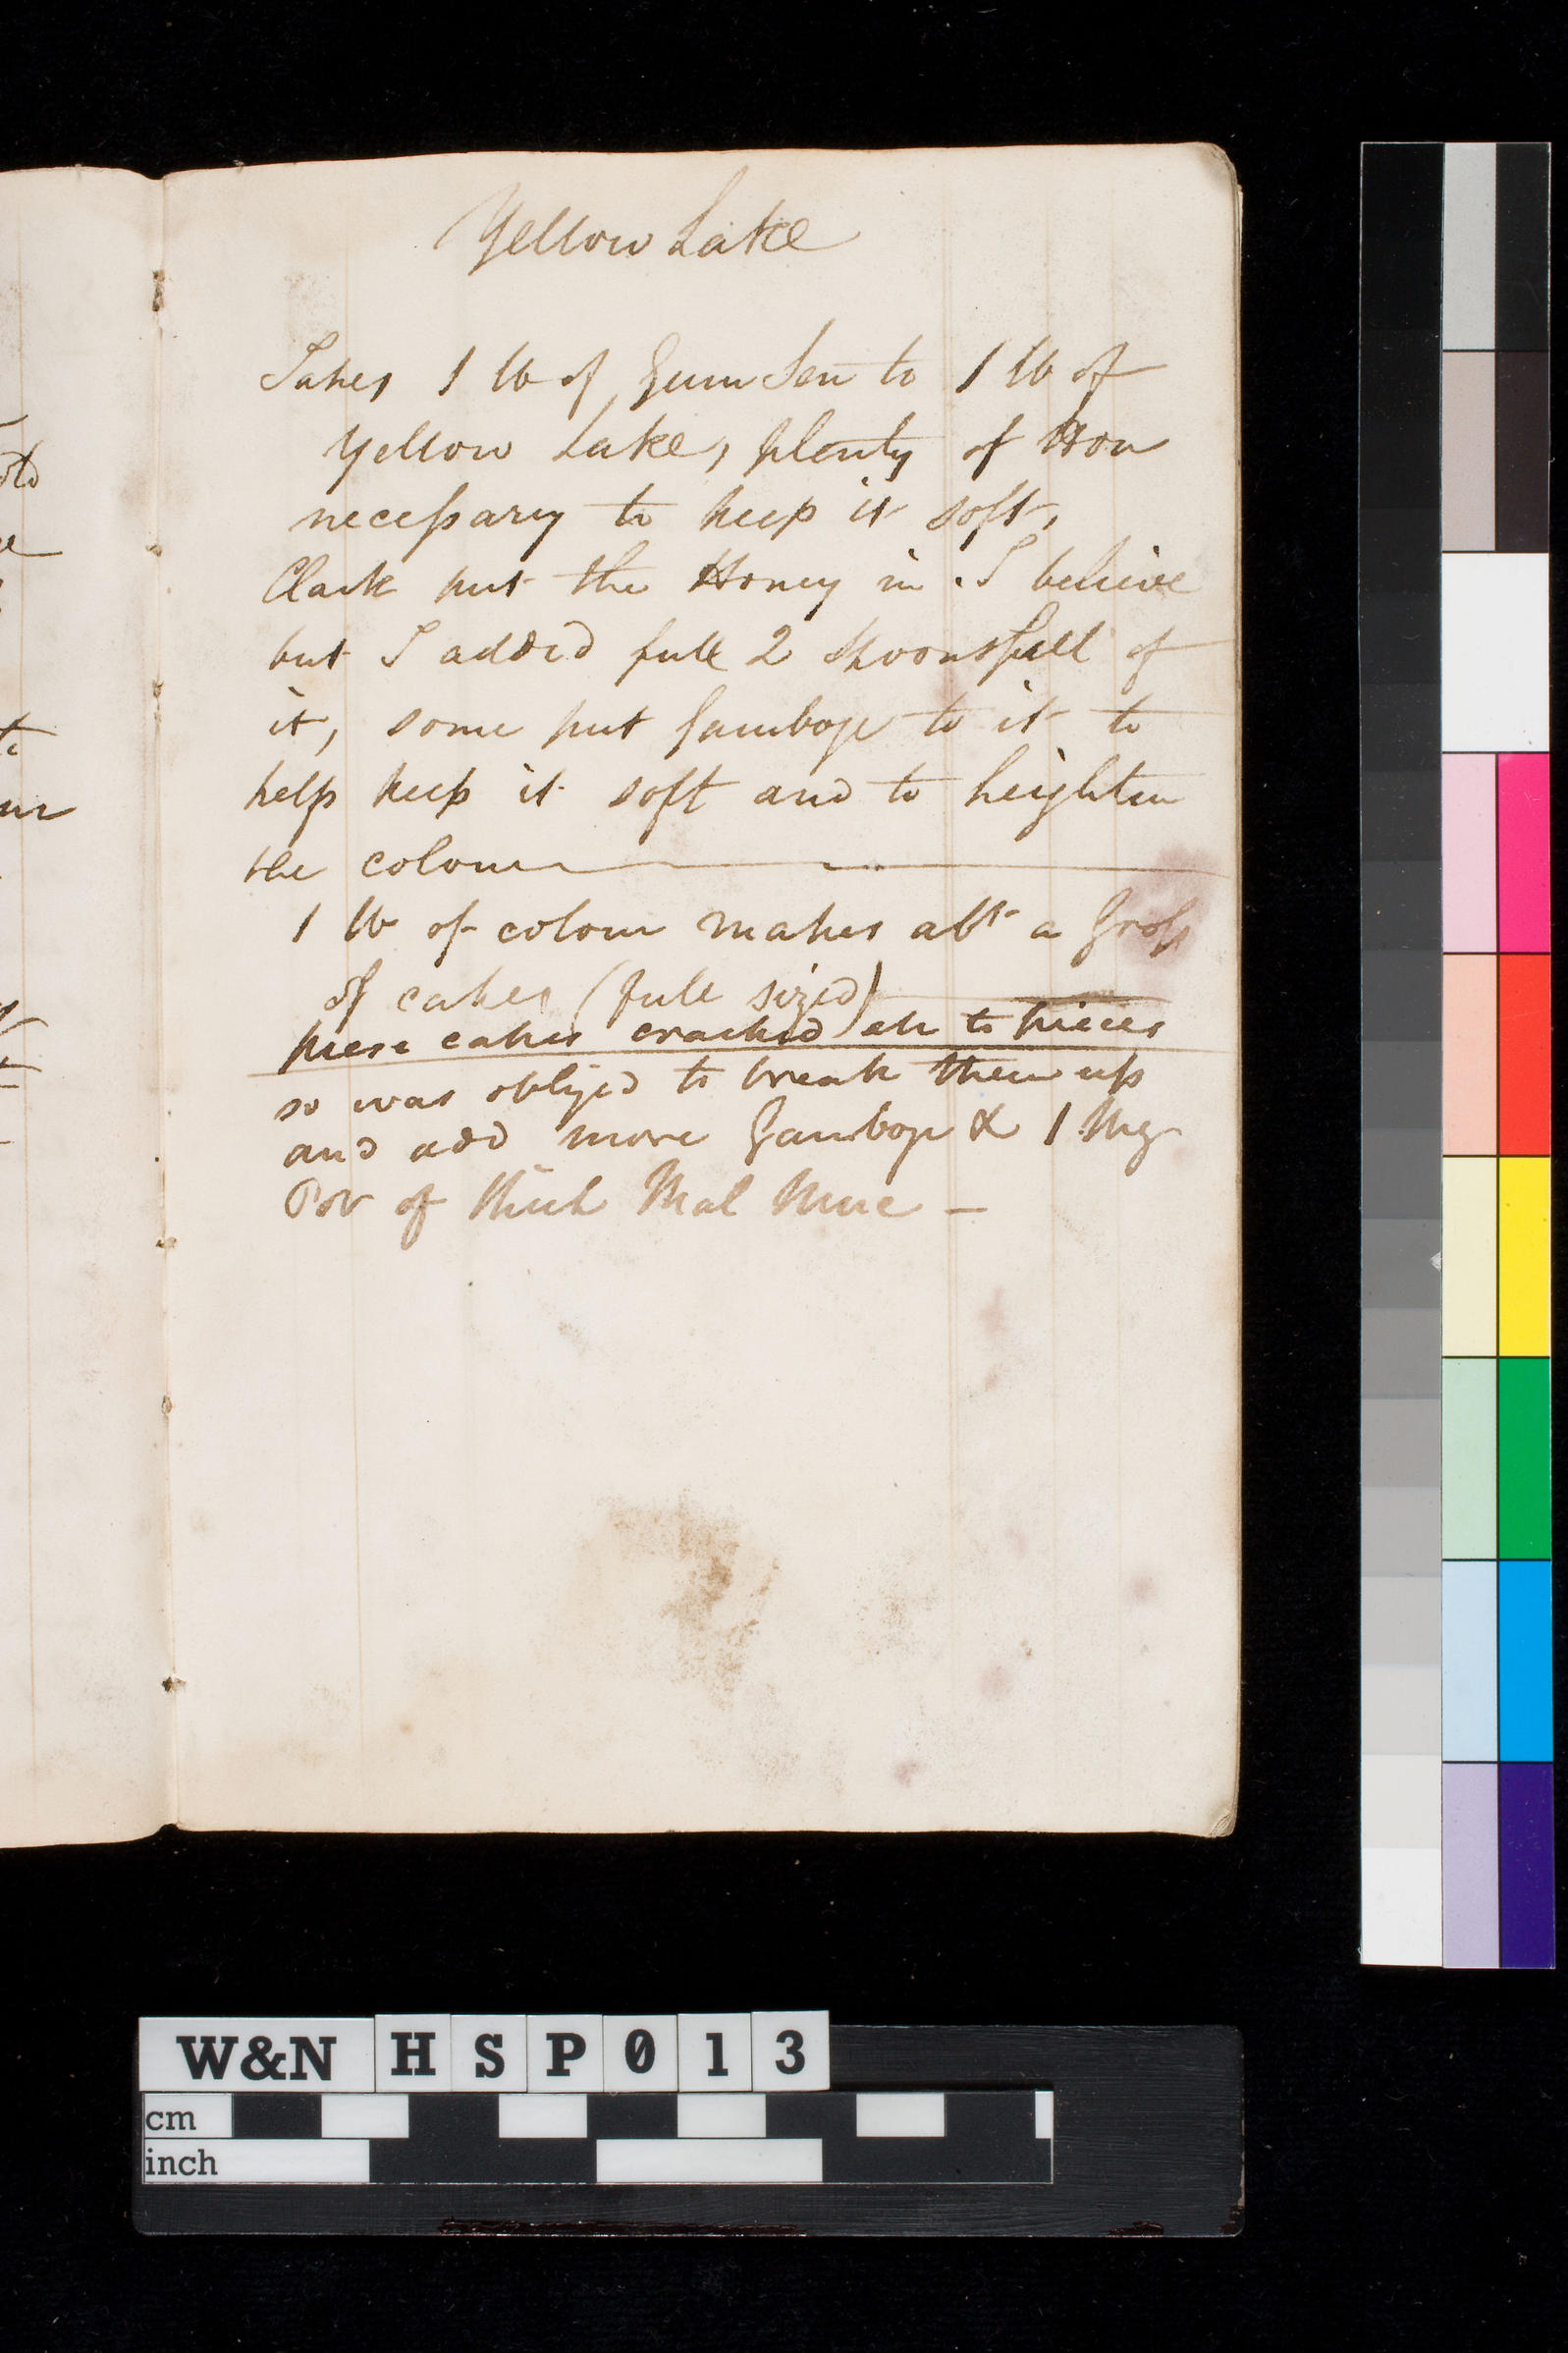 Yellow Lake
Takes 1 lb of Gum Sen to 1 lb of
Yellow Lake, plenty of Hon
necessary to keep it soft,
Clark put the Honey in I believe
but I added full 2 spoonsfull of
it, some put Gamboge to it to
help keep it soft and to heighten
the colour
1 lb of colour makes abt a Gross
of cakes (full sized)
these cakes cracked all to pieces
so was obliged to break them up
and add more Gamboge & 1
of thick
W&N HSP013
cm
inch